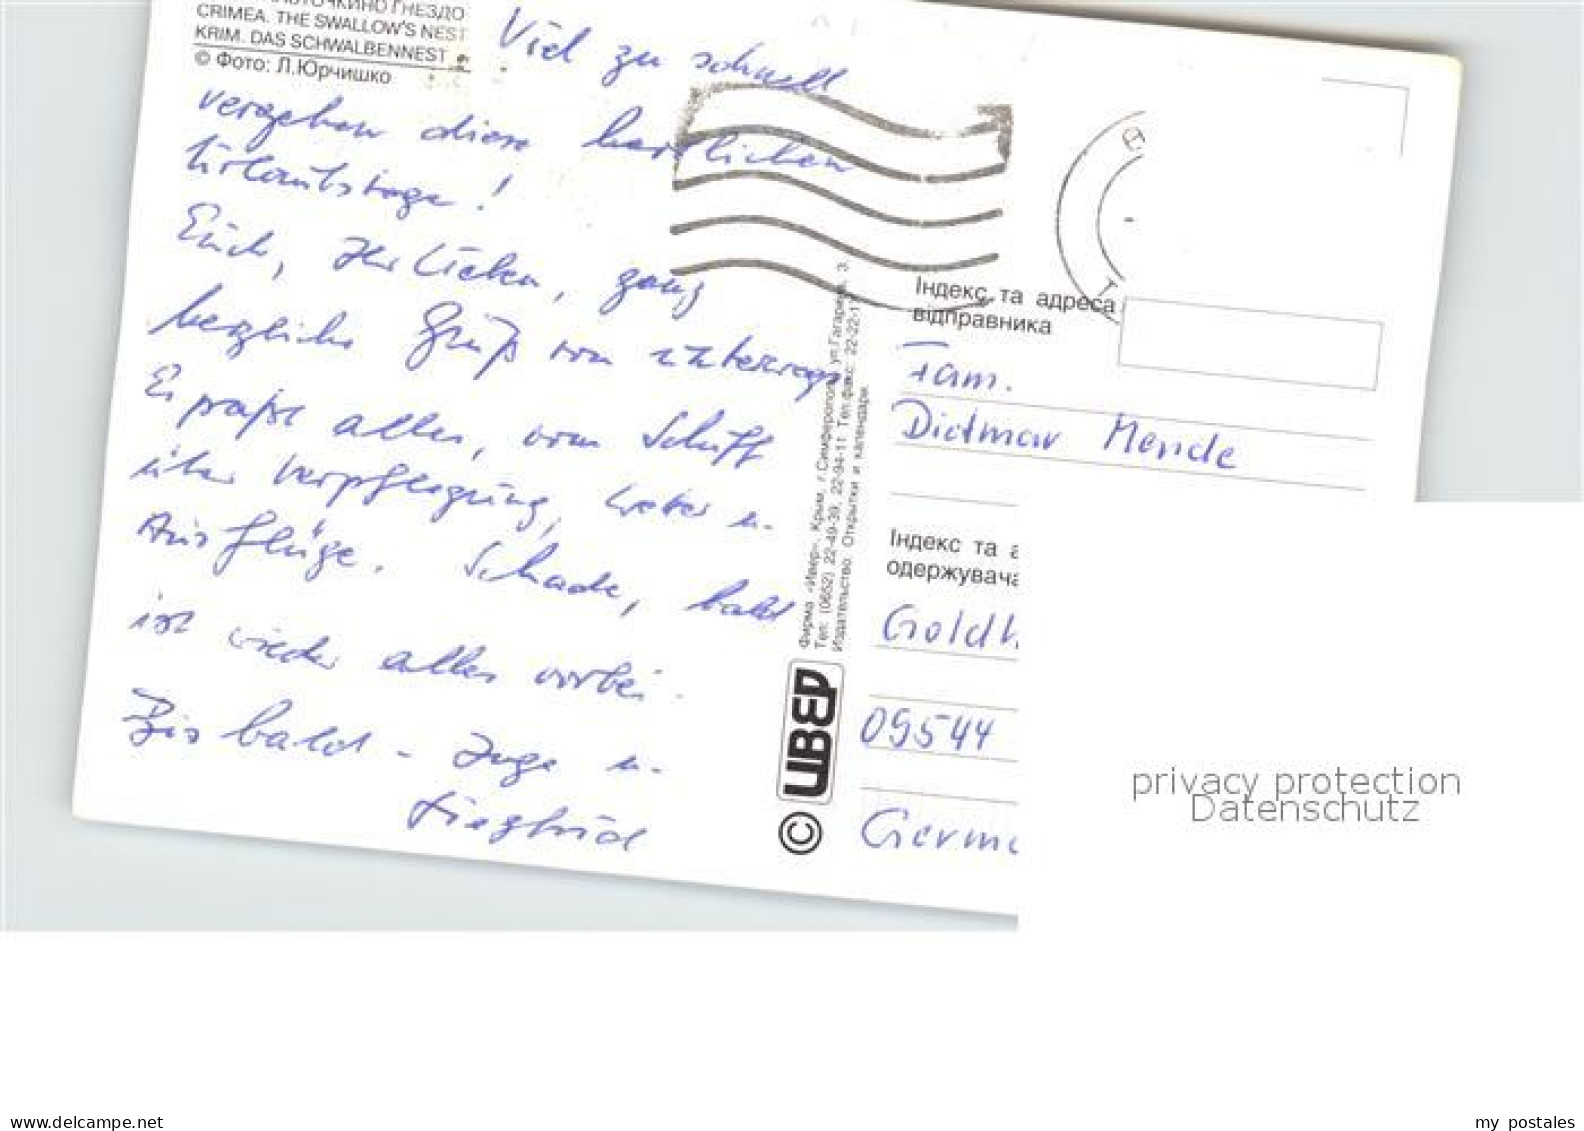 ГНЕЗДО
CRIMEA. THE SWALLOW'S NEST
KRIM. DAS SCHWALBENNEST
© Фото: Л.Юрчишко
Viel zu schnell
vergehen diese herrlichen
Urlaubstage!
Euch, Ihr Lieben, ganz
herzliche Grüße von unterwegs
Es paßt alles, vom Schiff
über Verpflegung, Wetter u.
Ausflüge. Schade, bald
ist wieder alles vorbei.
Bis bald - Inge u.
Siegfried
Фирма «Ивер». Крым, г.Симферополь, ул.Гагарина, 3.
Тел. (0652) 22-49-39, 22-94-11 Тел.факс: 22-22-1
Издательство. Открытки и календари.
© ИВЕР
Індекс та адреса
відправника
Fam.
Dietmar Mende
Індекс та а
одержувача
Goldh
09544
Germa
privacy protection
Datenschutz
www.delcampe.net
my postales